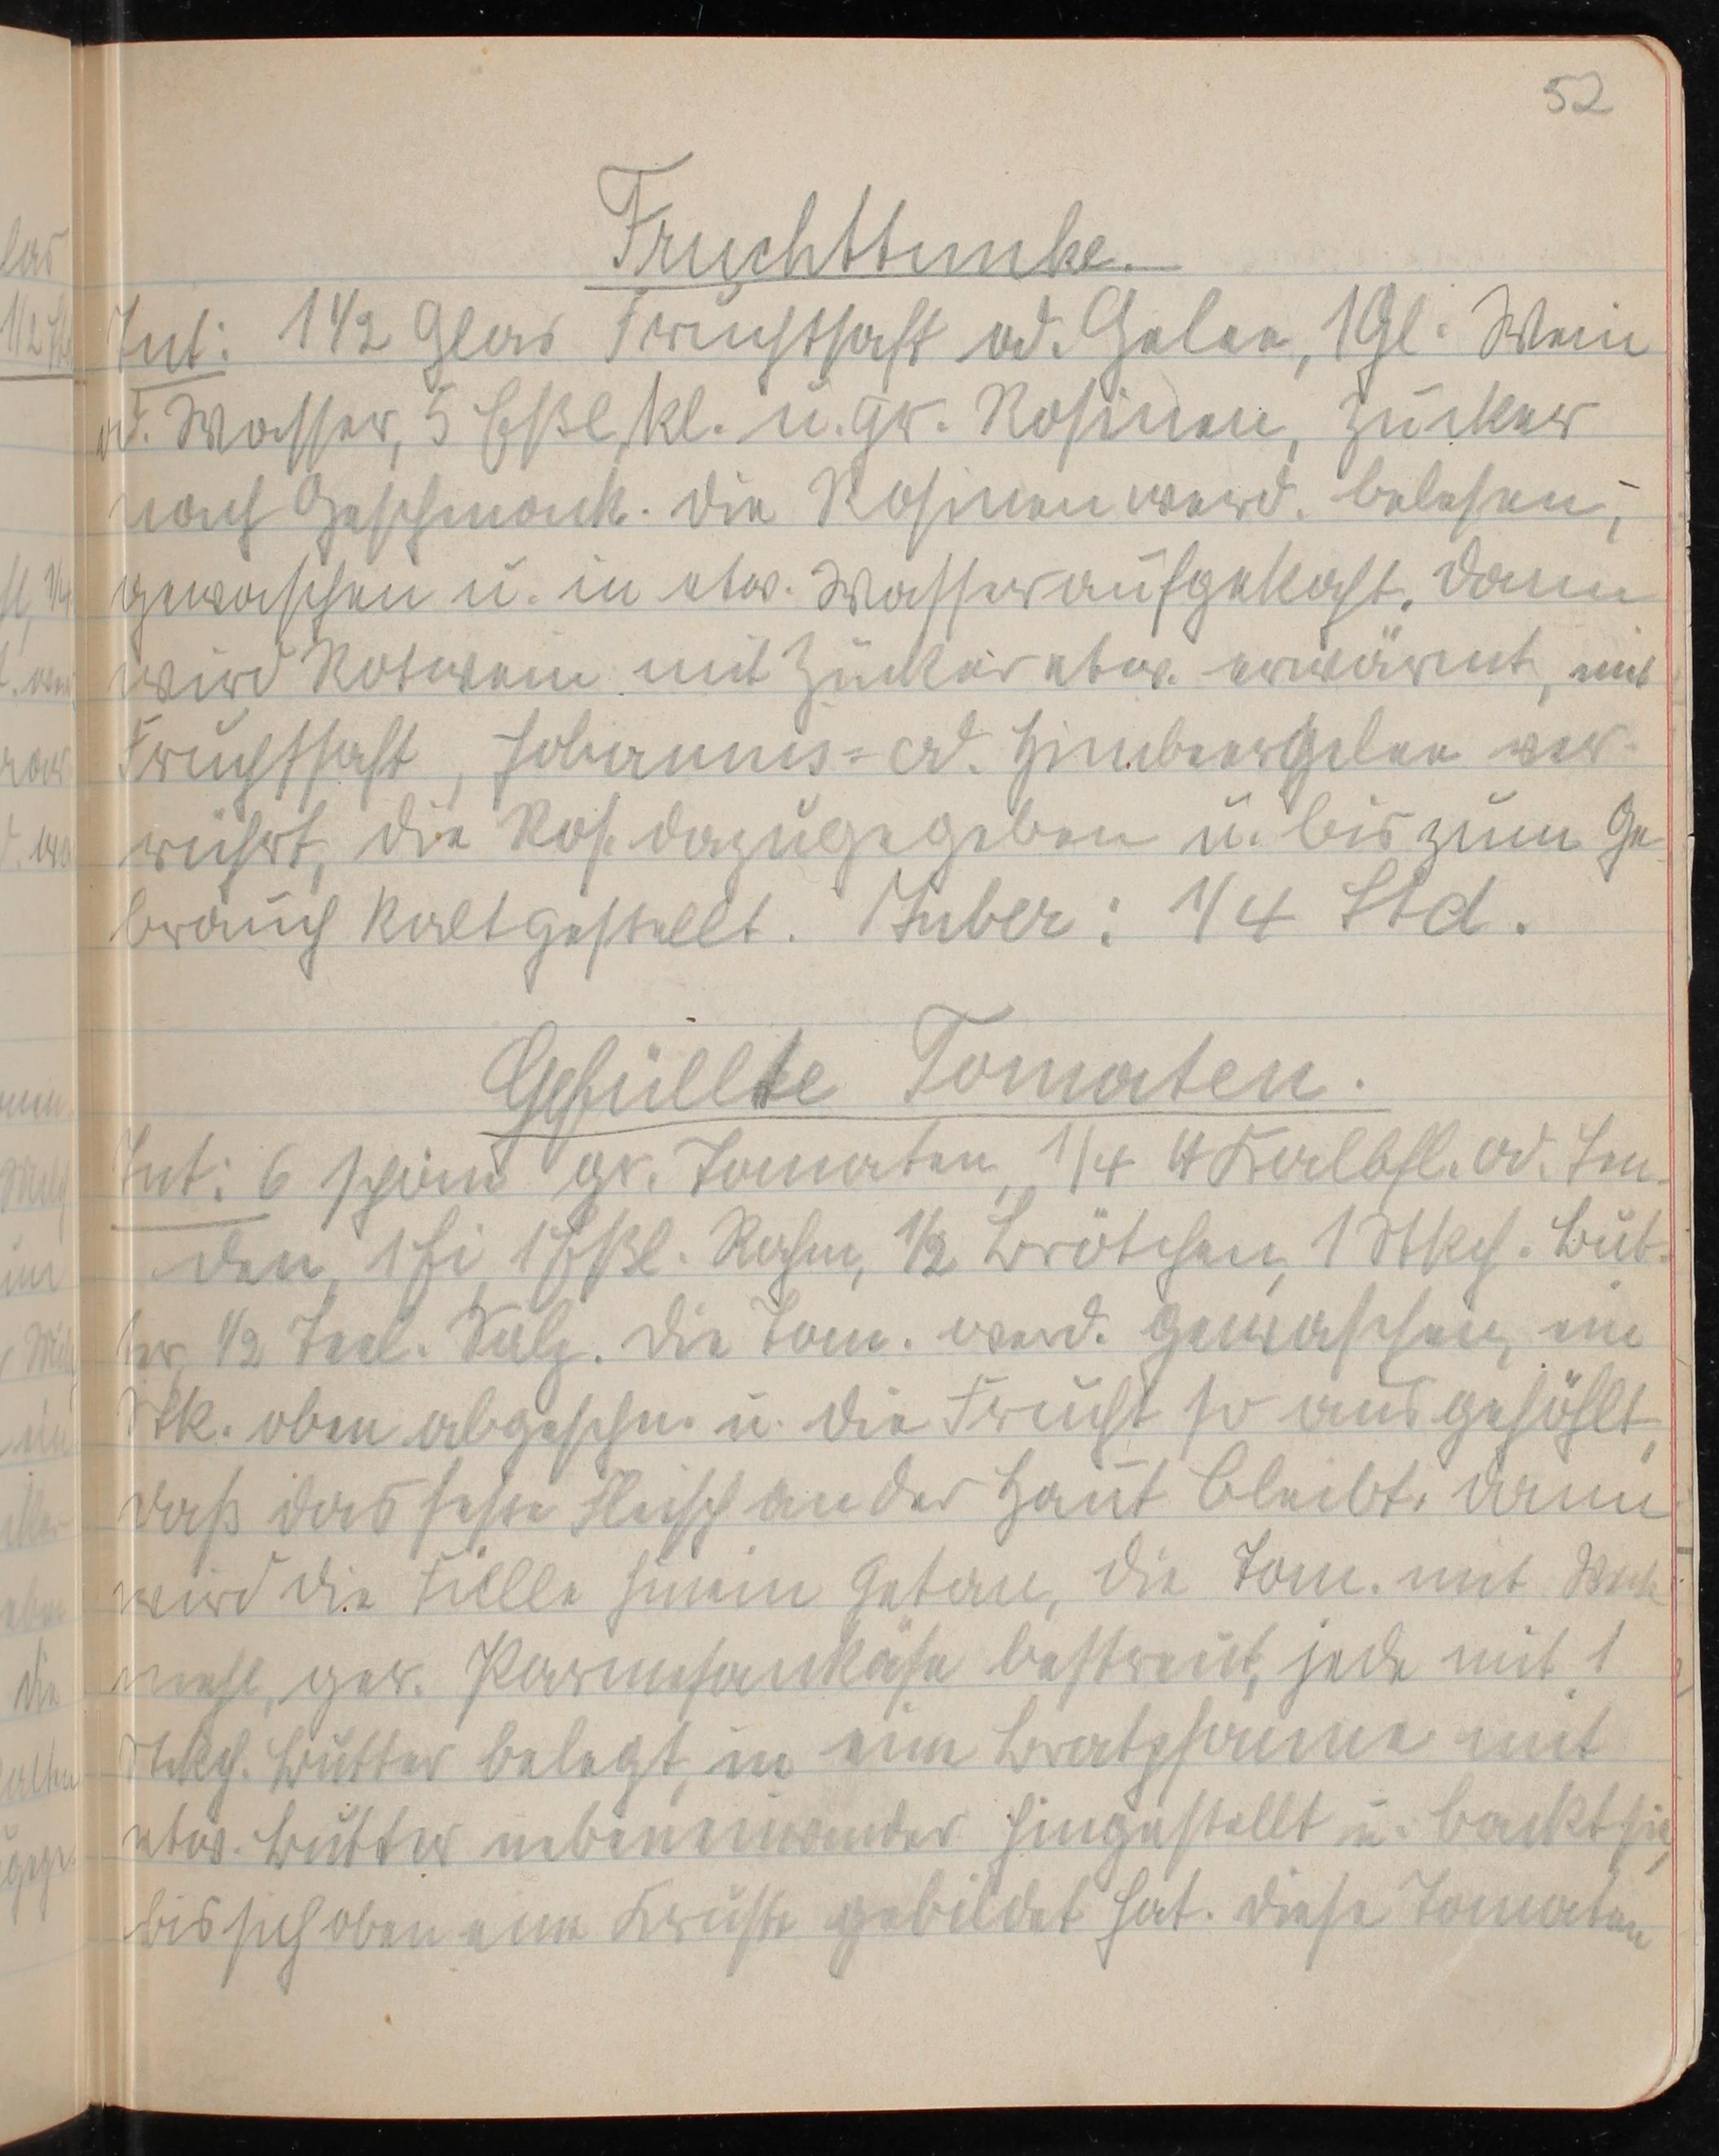 52
Fruchttunke.
Zut: 1 1/2 Glas Fruchtsaft od. Gelee, 1 Gl. Wein
od. Wasser, 5 Eßl. kl. u. gr. Rosinen, Zucker
nach Geschmack. Die Rosinen werd. belesen,
gewaschen u. in etw. Wasser aufgekocht. Dann
wird Rotwein mit Zucker etw. erwärmt, mit
Fruchtsaft, Johannis- od. Himbeergelee ver-
rührt, die Ros. dazugegeben u. bis zum Ge-
brauch kaltgestellt. Zuber: 1/4 Std.
Gefüllte Tomaten.
Zut: 6 schöne gr. Tomaten, 1/4 ℔ Kalbfl. od. Len-
den, 1 Ei, 1 Eßl. Rahm, 1/2 Brötchen, 1 Stkch. But-
ter, 1/2 Teel. Salz. Die Tom. werd. gewaschen, ein
Stk. oben abgeschn. u. die Frucht so ausgehöhlt,
daß das feste Fleisch an der Haut bleibt. Dann
wird die Fülle hinein getan, die Tom. mit Weck
mehl, ger. Parmesankäse bestreut, jede mit 1
Stkch. Butter belegt, in eine Bratpfanne mit
etw. Butter nebeneinander hingestellt u. backt sie,
bis sich oben eine Kruste gebildet hat. Diese Tomaten